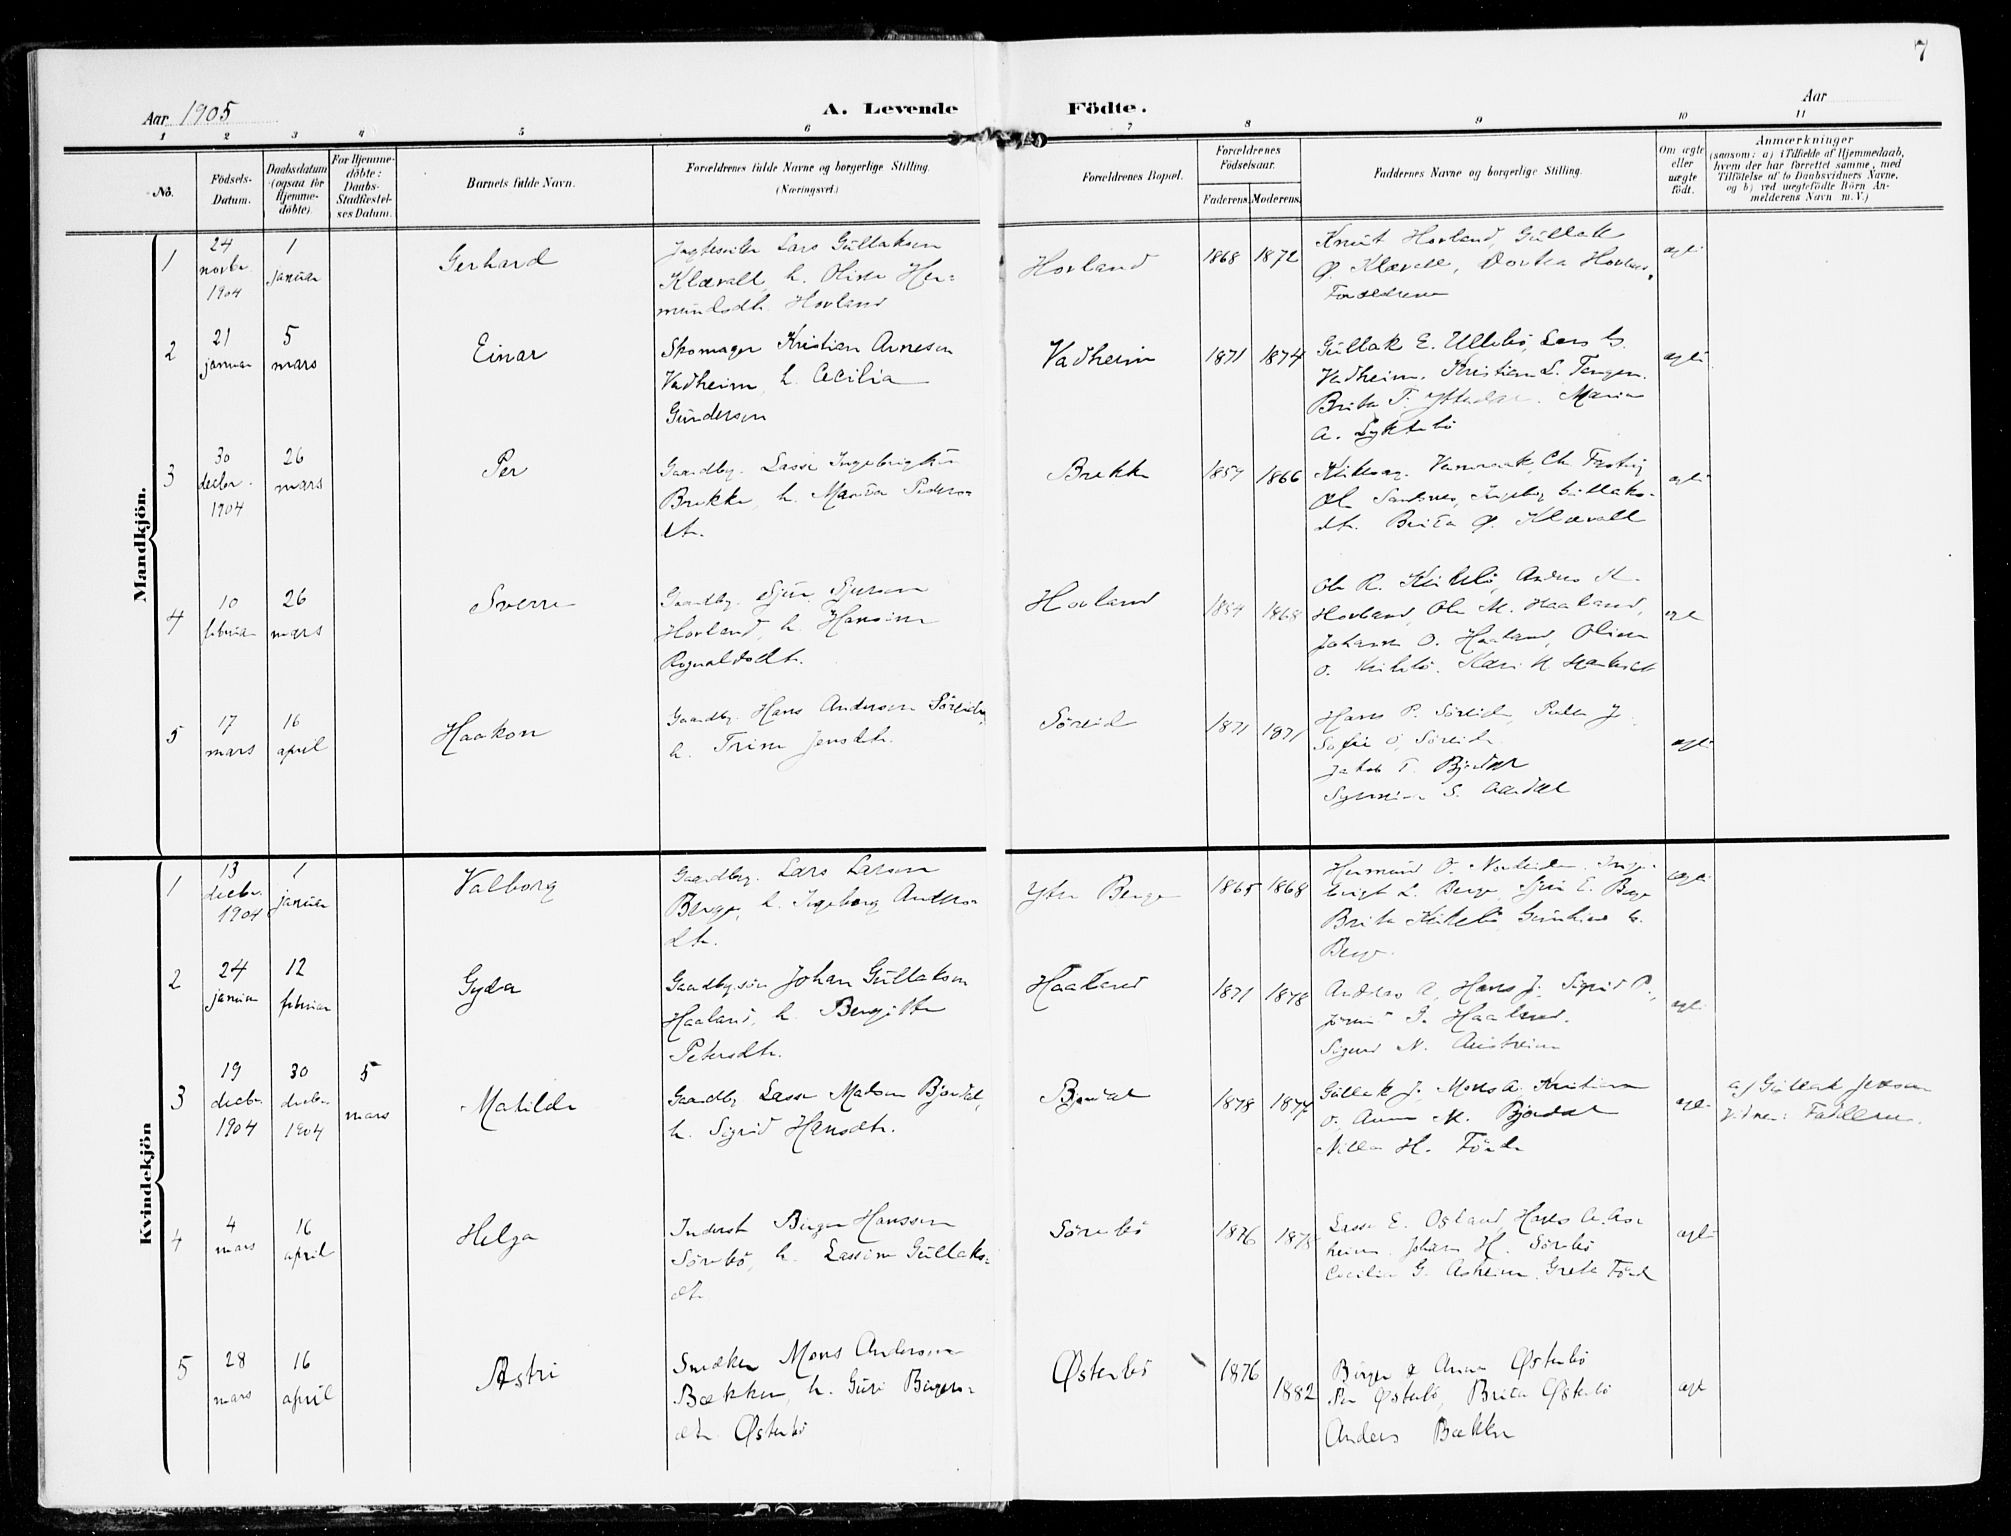 7
Aar 1905
A. Levende Födte.
Aar
1 2 3 4 5 6 7 8 9 10 11
No.
Födsels-Datum.
Daabsdatum (ogsaa for Hjemme-döbte).
For Hjemme-döbte: Daabs-Stadfæstel-ses Datum.
Barnets fulde Navn.
Forældrenes fulde Navne og borgerlige Stilling. (Næringsvei.)
Forældrenes Bopæl.
Forældrenes Födselsaar.
Faderens. Moderens.
Faddernes Navne og borgerlige Stilling.
Om ægte eller uægte födt.
Anmærkninger
(saasom: a) i Tilfælde af Hjemmedaab,
hvem der har forrettet samme, med
Tilföielse af to Daabsvidners Navne,
og b) ved uægtefödte Börn An-
melderens Navn m. V.)
Mandkjön.
1
24 novbr. 1904
1 januar
Gerhard
Lars Güllaksen
Klævold, h. Oline Her-
mundsdtr. Hovland
Hovland
1868 1872
Knut Hovland, Güllak
Ø. Klævold, Dortea Hovland,
Forældrene
ægte
2
21 januar
5 mars
Einar
Skomager Kristian Arnesen
Vadheim, h. Cecilia
Gündersen
Vadheim
1871 1874
Güllak E. Ullebö, Lars
Vadheim, Kristian L. Tangen.
Brita T. Maria
A. Lyktebö
ægte
3
30 decbr. 1904
26 mars
Per
Gaardbr. Lasse Ingebrigtsen
Brekke, h. Marita Peders-
dtr.
Brekke
1857 1866
Ole Sandnes, Ingebor Güllaks-
dtr. Brita Ø. Klævold
ægte
4
10 februar
26 mars
Sverre
Gaardbr. Sjur Sjursen
Hovland, h. Hansine
Rognaldsdtr.
Hovland
1854 1868
Ole R. Kirkebö, Anders
Hovland, Ole M. Haaland,
Johanne O. Haaland, Oline
O. Kirkebö. Kari
ægte
5
17 mars
16 april
Haakon
Gaardbr. Hans Andersen Söreide,
h. Trine Jensdtr.
Söreid
1871 1871
Hans P. Söreide,
Sofie O. Söreide.
Jakob T. Bjordal
S. Aardal
ægte
Kvindekjön
1
13 decbr. 1904
1 januar
Valborg
Gaardbr. Lars Larsen
Berge, h. Ingeborg Anders-
dtr.
Ytre Berge
1865 1868
Hermund O. Ingje-
brigt L. Berge, Sjur E. Berge
Brita Kirkebö,
Berge.
ægte
2
24 januar
12 februar
Gyda
Gaardbr.sön Johan Güllaksen
Haaland, h. Bergitte
Petersdtr.
Haaland
1871 1878
Anders A., Hans J., Sigrid P.,
Haaland.
Sigurd N. Austreim
ægte
3
19 decbr. 1904
30 decbr. 1904
5 mars
Matilde
Gaardbr. Lasse Madsen Bjordal,
h. Sigrid Hansdtr.
Bjordal
1878 1877
Güllak J. Mons A. Kristian
O. Anna M. Bjordal
Nilla H. Förde
ægte
a) Güllak Jensen
Vidner: Fadderne.
4
4 mars
16 april
Helga
Inderst Birger Hanssen
Sörebö, h. Lassine Güllaks-
dtr.
Sörebö
1876 1875
Lasse E. Osland, Hans A. As-
heim. Johan H. Sörebö
Cecilia G. Asheim, Greta Förde
ægte
5
28 mars
16 april
Astri
Snedker Mons Andersen
Bækken, h. Guri Birgers-
dtr. Østerbö
Østerbö
1876 1882
Birger & Anna Østerbö
Per Østerbö, Brita Østerbö
Anders Bækken
ægte